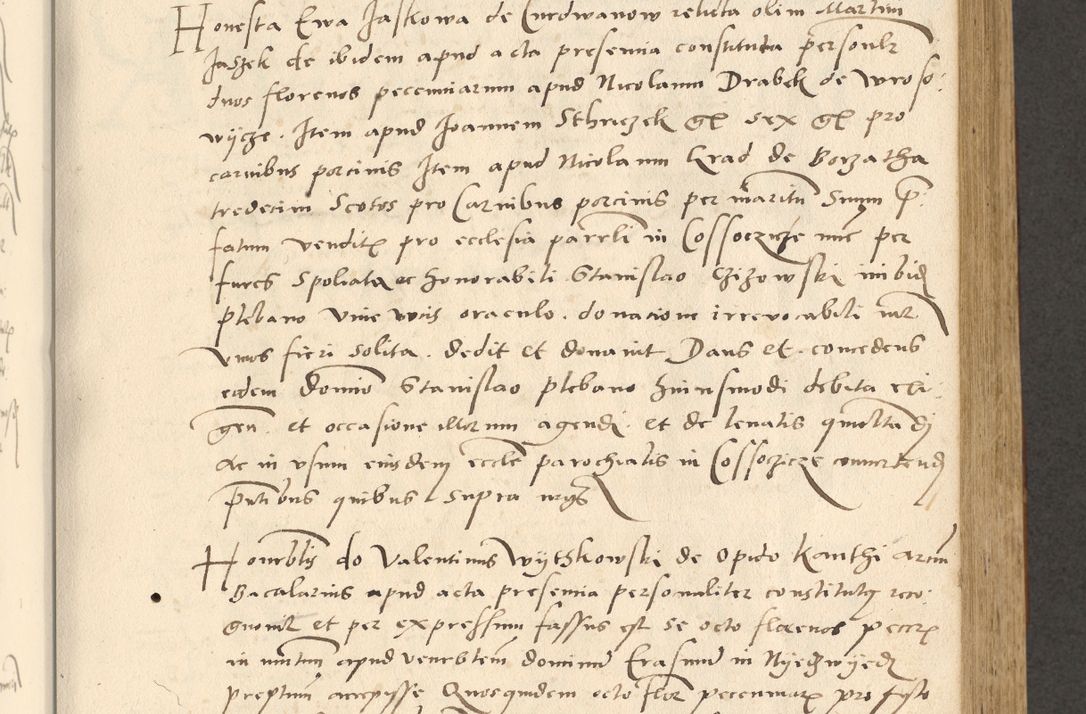 Honesta Ewa Jaskowa de Curdwanow relicta olim Martini
Jaszek de ibidem apud acta presencia constituta personlr
duos florenos pecuniarum apud Nicolaum Drabek de Wroso
wycze. Item apud Joannem Sthriczek gl sex gl pro
carnibus porcinis Item apud Nicolaum Krad de Borzatha
tredecim Scotos pro Carnibus porcinis per maritum Suum p
fatum vendit pro ecclesia parrli in Cossoczicze nunc per
fures Spoliata ac honorabili Stanislao Czizowski inibid
plebano vive vocis oraculo. donacione irrevocabili inter
vivos fieri solita. dedit et donavit Dans et concedens
eidem domino Stanislao plebano huiusmodi debita exi
gen. et occasione illorum agendi. et de levatis quittandi
ac in usum eiusdem eccle parochialis in Cossoczicze convertendi
pntibus quibus supra
Honorablis do Valentinus Wythkowski de Opido Kanthi artium
Bacalarius apud acta presencia personaliter constitutus reco
gnovit et per expressum fassus est se octo florenos pecun
in mutuum apud venerablem dominum Erasmum in Nyedzwyedz
preptum accepisse Quosquidem octo flor pecuniar pro festo